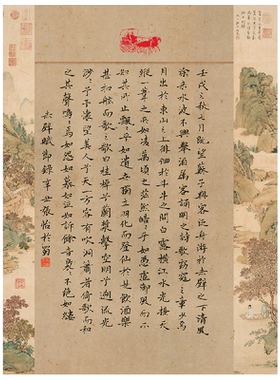 壬戌之秋七月既望蘇子與客泛舟遊於赤壁之下清風
徐來水波不興舉酒屬客誦明月之詩歌窈窕之章少焉
月出於東山之上徘徊於斗牛之間白露橫江水光接天
縱一葦之所如凌萬頃之茫然浩浩乎如憑虛御風而不
知其所止飄飄乎如遺世獨立羽化而登仙於是飲酒樂
甚扣舷而歌之歌曰桂棹兮蘭槳擊空明兮溯流光
渺渺兮予懷望美人兮天一方客有吹洞簫者倚歌而和
之其聲嗚嗚然如怨如慕如泣如訴餘音裊裊不絕如縷
赤壁賦節錄辛丑張怡於蜀